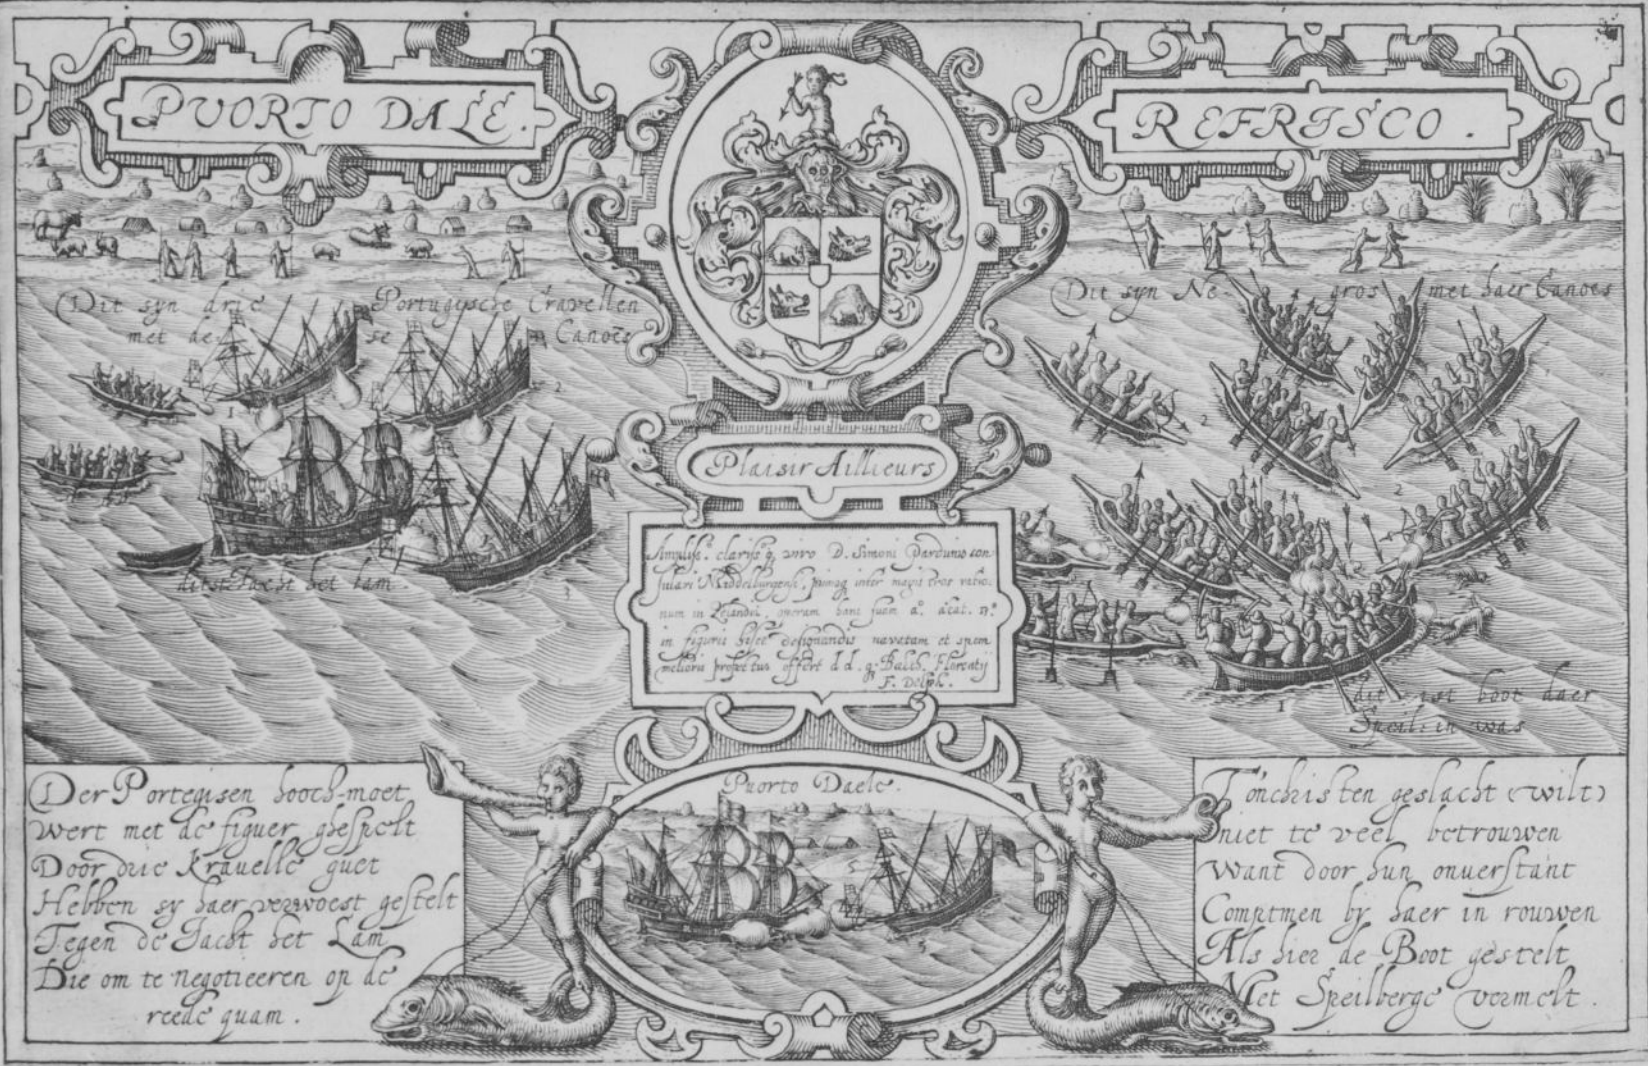 PVORTO DALE.
REFRISCO.
Dit syn drie Portugysche Cravellen
met de se Canoes
Dit syn Negros met haer Canoes
1
2
2
1
2
Plaisir Aillieurs
Ampliss.o clariss.o q. viro D. Simoni Parduno con
sulari Middelburgensi,
num in Zelandia, operam hanc suam
in figuris hisce designandis navatam et spem
melioris profectus offert d d. q. Balth. Florentij
F. Delph.
dit is t Jacht het Lam
3
dit is t boot daer
Speil: in was
1
Der Portegisen hooch-moet
Wert met de figuer ghespelt
Door drie kravelle guet
Hebben sy haer verwoest gestelt
Tegen de Jacht het Lam
Die om te negotieeren op de
reede quam.
Puorto Daele.
5
5
Tonchristen geslacht (wilt)
niet te veel betrouwen
Want door hun onverstant
Comptmen by haer in rouwen
Als hier de Boot gestelt
Met Speilberge vermelt.